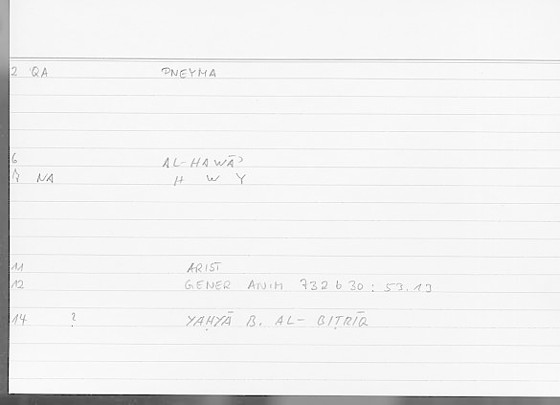 2 QA PNEYMA
6 AL-HAWĀʾ
7 NA H W Y
11 ARIST
12 GENER ANIM 732 b 30 : 53.19
14 ? YAḤYĀ B. AL-BIṬRĪQ